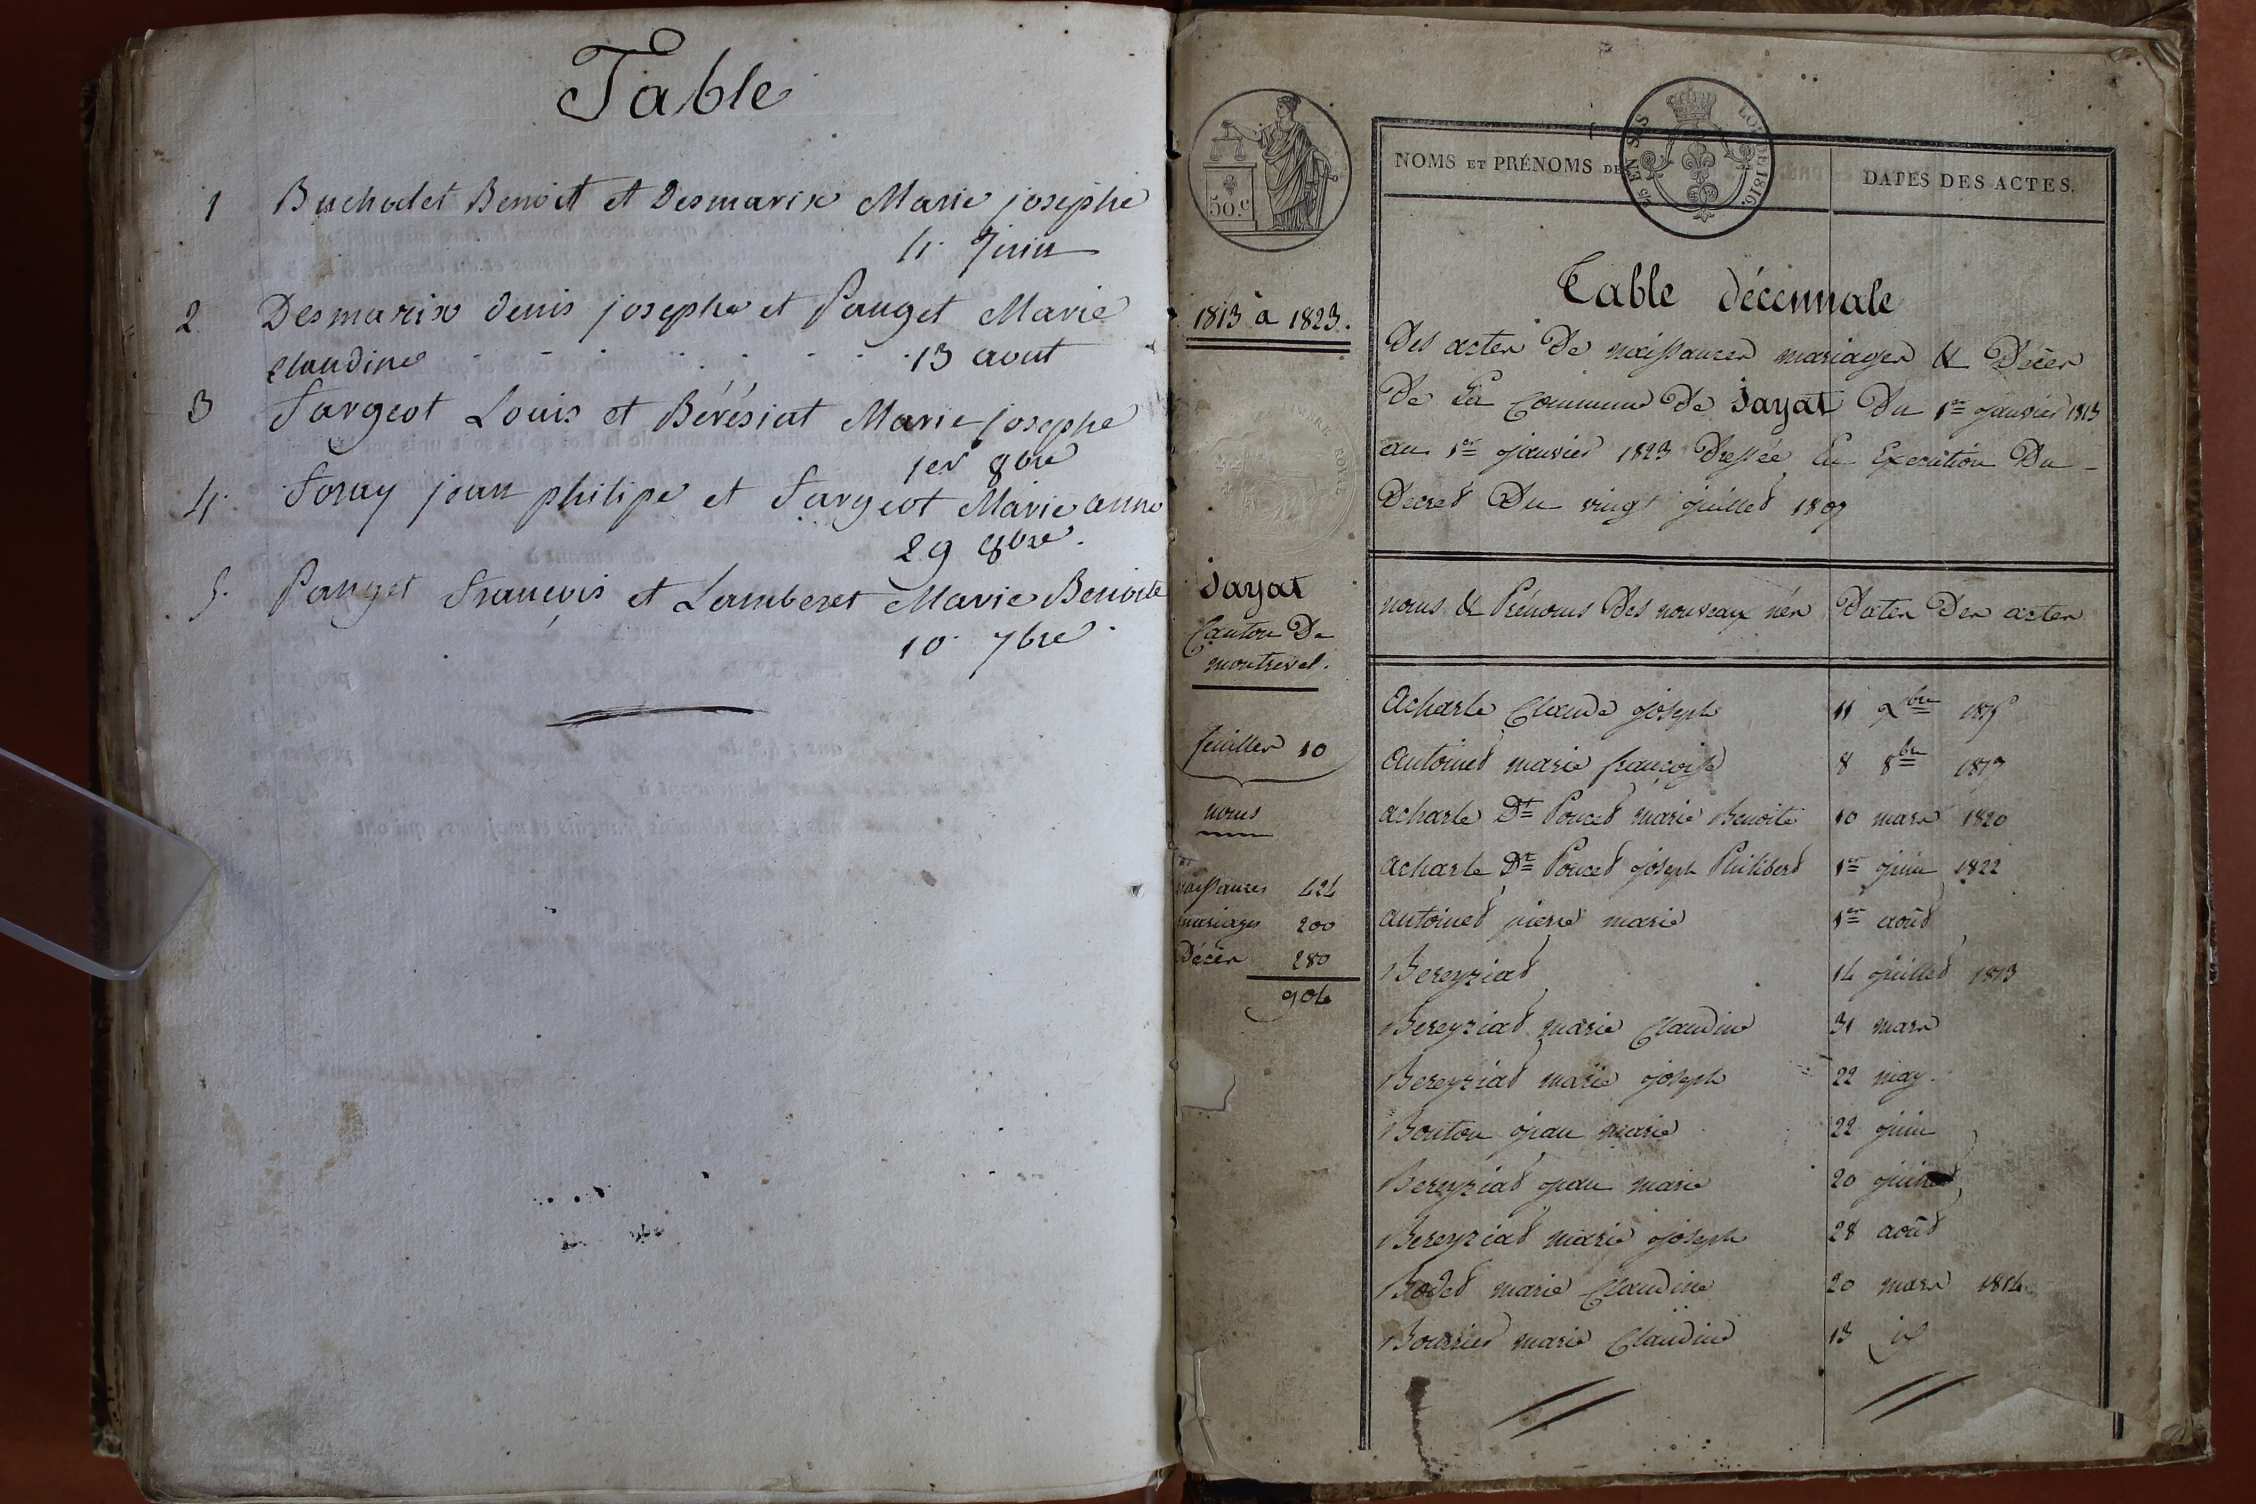 Table
1 Buchodet Benoit et Desmarix Marie josephe
4 Juin
2 Desmarix denis josephe et Pauget Marie
Claudine . . . . . . . 13 aout
3 Fargeot Louis et Bérésiat Marie josephe
1er 8bre
4. Foray jean philipe et Fargeot Marie anne
29 8bre.
5. Pauget François et Lamberet Marie Benoite
10 7bre.
50.c
1813 à 1823.
Jayat
Canton De
montrevel.
feuilles 10
noms
naissances 424
mariages 200
Décès 280
904
NOMS ET PRÉNOMS DES
DATES DES ACTES.
LOI DE 1816.
Table décennale
Des actes De naissances mariages & Décès
De La Commune De Jayat Du 1er janvier 1813
au 1er janvier 1823 Dressée En Execution Du
Decret Du vingt juillet 1807
noms & Prénoms Des nouveaux nés Dates Des actes
Acharle Claude joseph 11
Antoinet marie françoise 8 8bre
acharle Dt Poncet marie Benoite 10 mars 1820
acharle Dt Poncet joseph Philibert 1er juin 1822
antoinet pierre marie 1er août
Bereyziat 14 juillet 1813
Bereyziat marie Claudine 31 mars
Bereyziat marie joseph 22 may.
Bouton jean marie 22 juin
Bereyziat jean marie 20
Bereyziat marie joseph 28 août
marie Claudine 20 mars 1814
marie Claudine 13 id